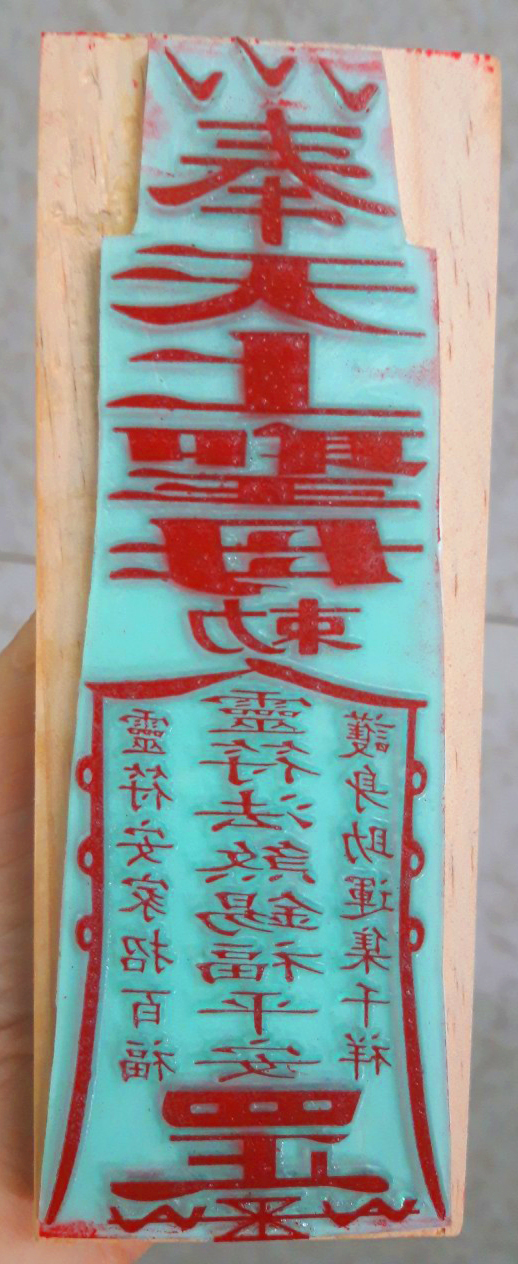 奉
天上聖母
勅
靈符安家招百福
靈符法煞錫福平安
護身助運集千祥
罡